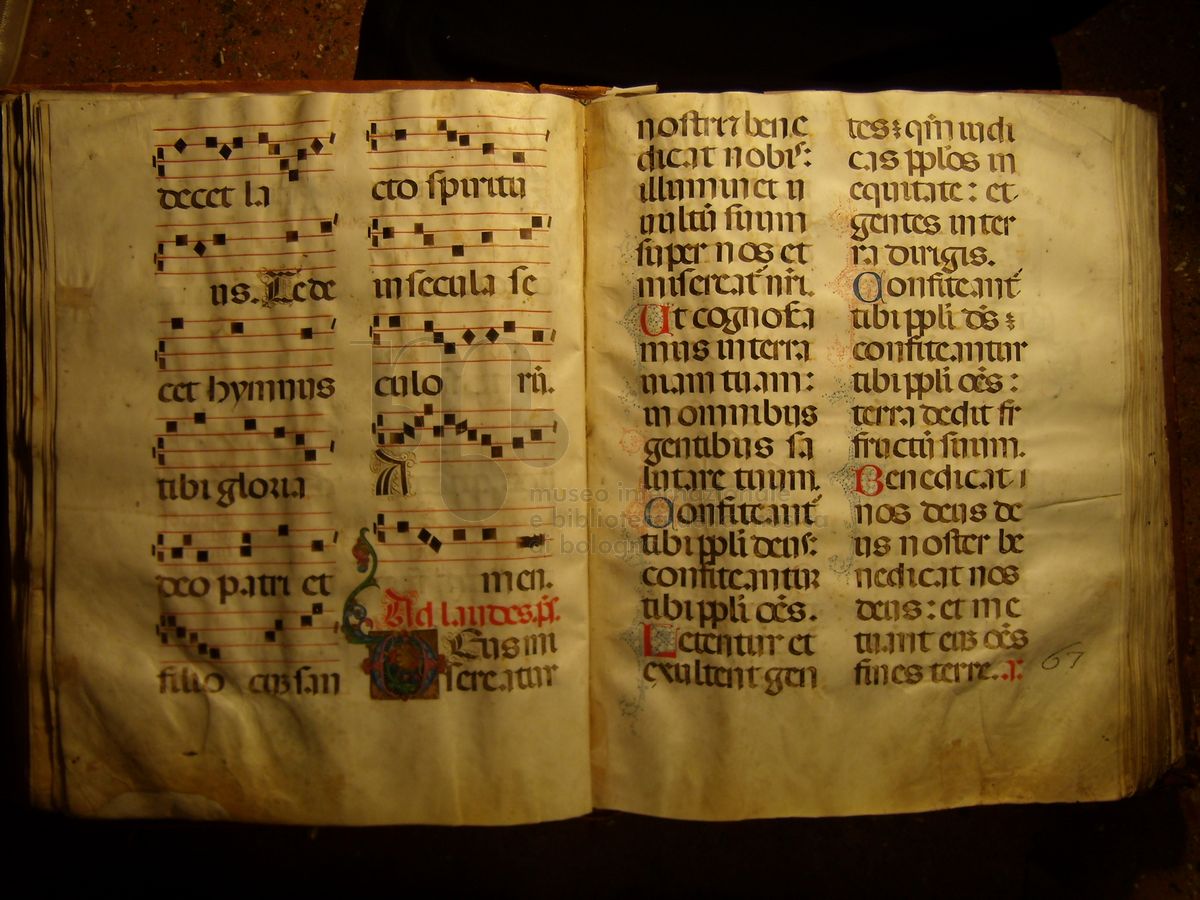 decet la
us. Te de
cet hymnus
tibi gloria
deo patri et
filio eiusan
cto spiritu
in secula se
culo rū.
A
men.
Ad laudes. ps.
Deus mi
sereatur
nostri ⁊ bene
dicat nobis:
illuminet u
ultū suum
super nos et
misereat nr̄i.
Ut cognosca
mus in terra
uiam tuam:
in omnibus
gentibus sa
lutare tuum.
Confiteant
tibi ppli deus:
confiteantur
tibi ppli oēs.
Letentur et
exultent gen
tes: qm̄ iudi
cas pplos in
equitate: et
gentes in ter
ra dirigis.
Confiteant
tibi ppli ds̄:
confiteantur
tibi ppli oēs:
terra dedit fr
fructū suum.
Benedicat
nos deus de
us noster be
nedicat nos
deus: et me
tuant eū oēs
fines terre. a.
67
museo internazionale
e biblioteca della musica
di bologna